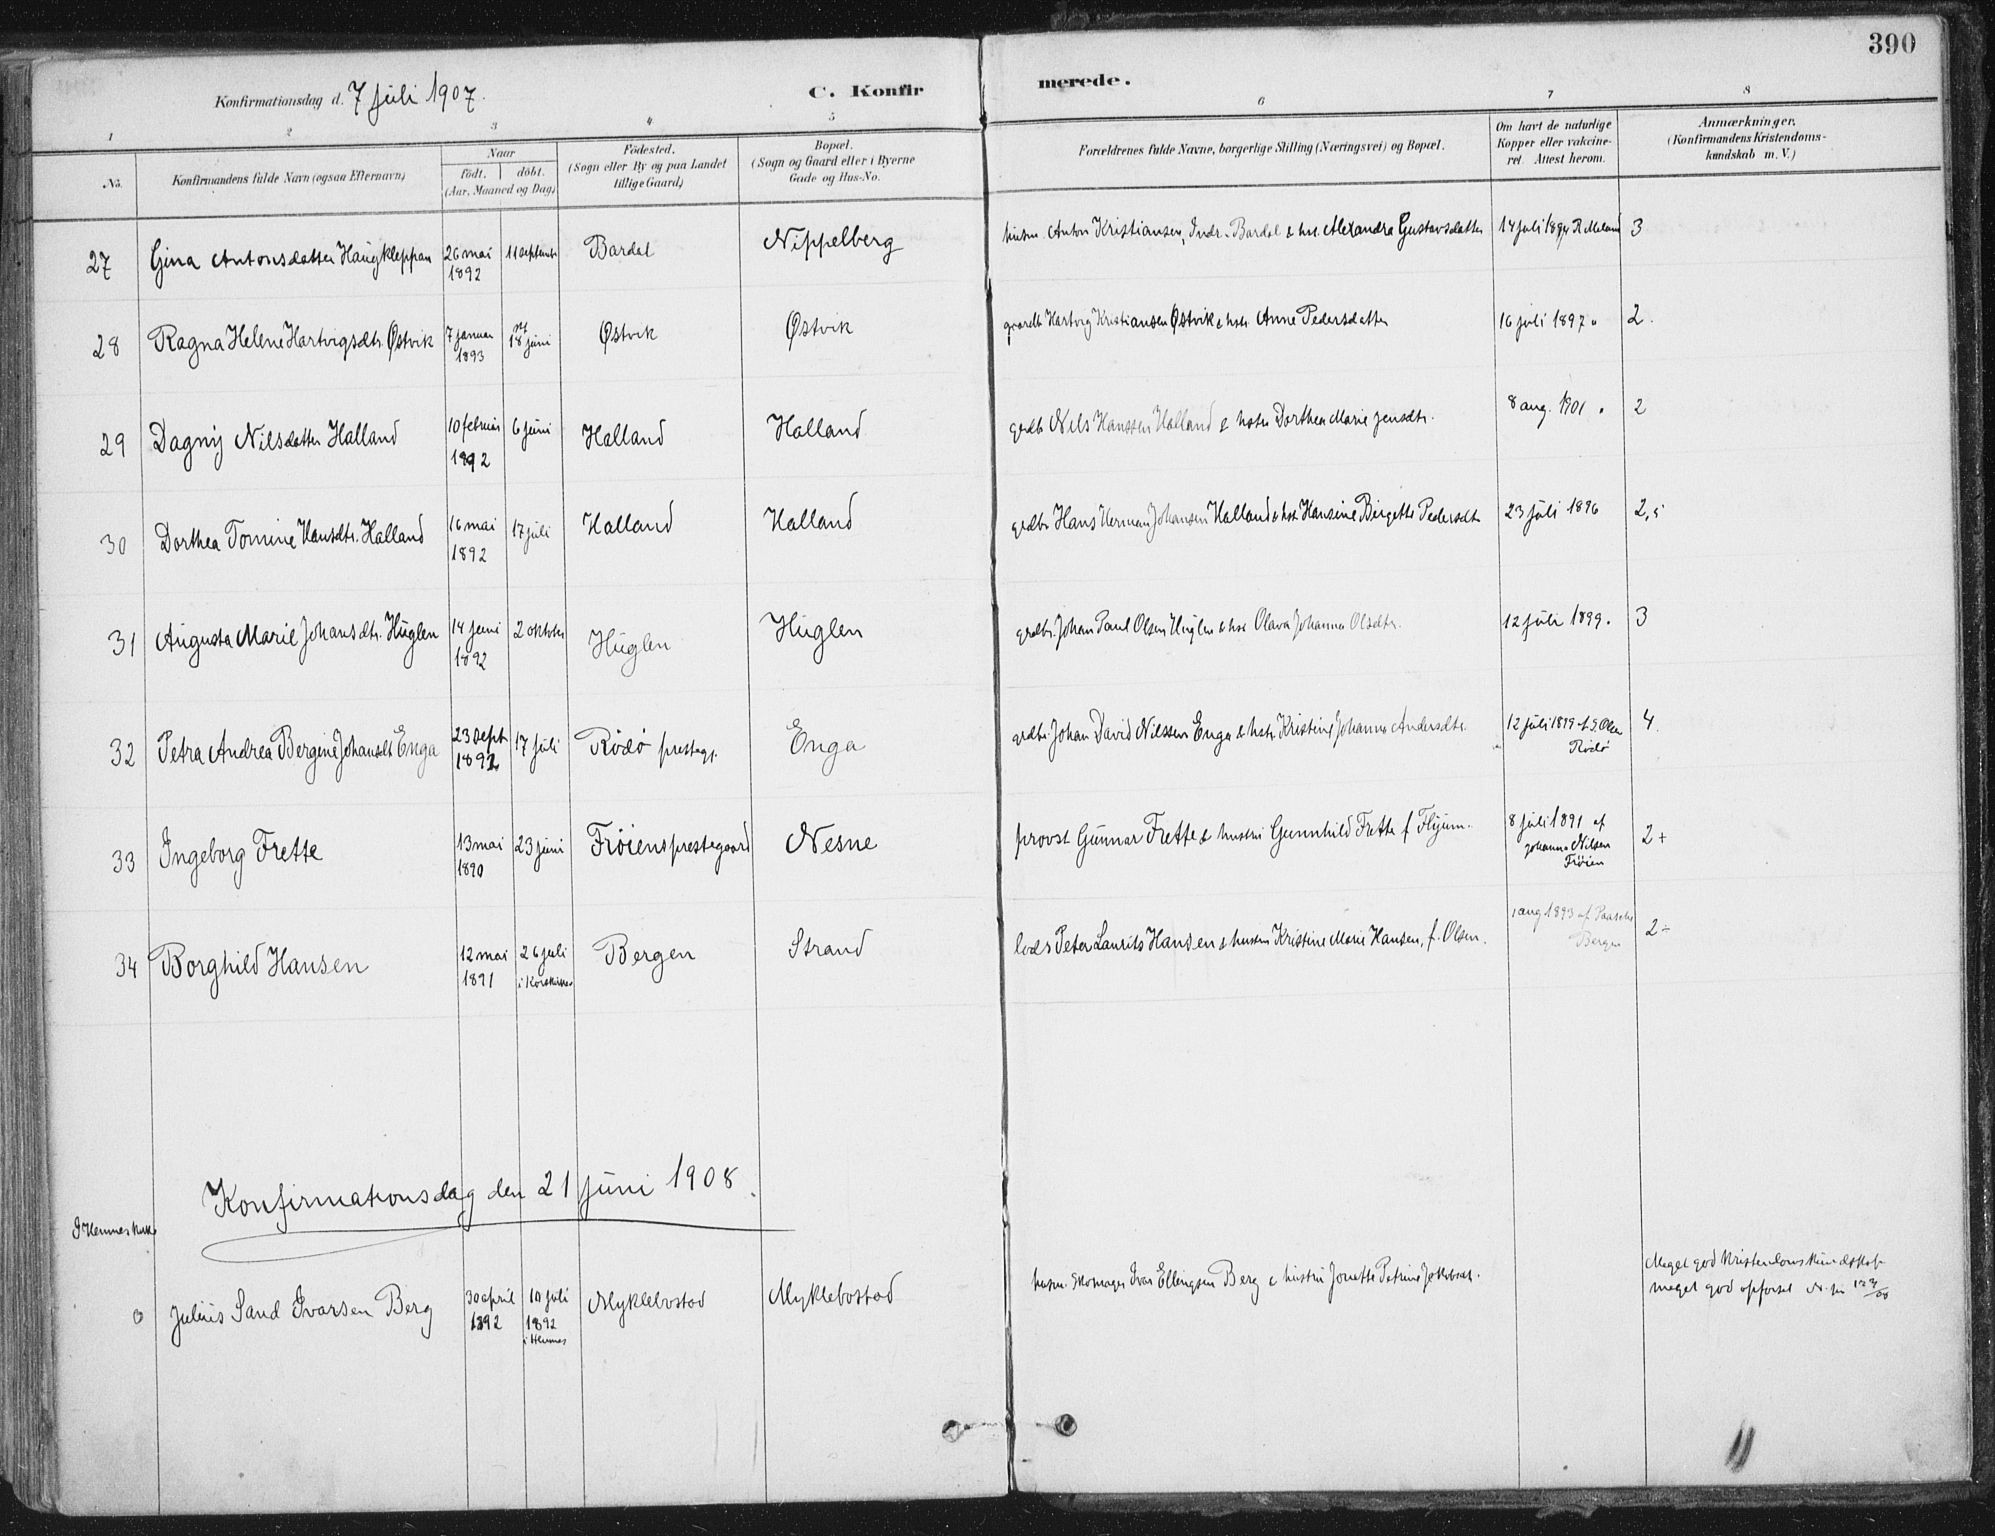 390
Konfirmationsdag d. 7 juli 1907.
C. Konfirmerede.
1 2 3 4 5 6 7 8
No.
Konfirmandens fulde Navn (ogsaa Efternavn)
Naar
födt. döbt.
(Aar, Maaned og Dag)
Födested.
(Sogn eller By og paa Landet
tillige Gaard)
Bopæl.
(Sogn og Gaard eller i Byerne
Gade og Hus-No.
Forældrenes fulde Navne, borgerlige Stilling (Næringsvei) og Bopæl.
Om havt de naturlige
Kopper eller vakcine-
ret. Attest herom.
Anmærkninger.
(Konfirmandens Kristendoms-
kundskab m. V.)
27 Gina Antonsdatter Haugkleppan 26 mai 1892 11 septemb Bardal Nippelberg husm. Anton Kristiansen, Indr. Bardal & hst. Alexandra Gustavsdatter 14 juli 3
28 Ragna Helene Hartvigsdtr. Østvik 7 januar 1893 18 juni Østvik Østvik gaardb Hartvig Kristiansen Østvik & hstr Anne Pedersdatter 16 juli 1897 " 2.
29 Dagny Nilsdatter Halland 10 februar 1892 6 juni Halland Halland grdb Nils Hanssen Halland & hstru Dorthea Marie Jensdtr. 8 aug. 1901 " 2
30 Dorthea Tomine Hansdtr. Halland 16 mai 1892 17 juli Halland Halland grdbr Hans Herman Johansen Halland & hst Hansine Birgitte Pedersdtr 23 juli 1896 2,5
31 Augusta Marie Johansdtr. Huglen 14 juni 1892 2 oktober Huglen Huglen grdbr. Johan Paul Olsen Huglen & hst Olava Johanna Olsdtr. 12 juli 1899. 3
32 Petra Andrea Bergine Johansdt Enga 23 sept 1892 17 juli Rödö prestegj. Enga grdbr. Johan David Nilssen Enga & hstr Kristine Johanna Andersdtr. 12 juli 1899 Rödö 4.
33 Ingeborg Frette 13 mai 1890 23 juni Fröiens prestegaard Nesne provst Gunnar Frette & hustru Gunnhild Frette f. Flyum. 8 juli 1891 af Johanna Nilsen Fröien 2+
34 Borghild Hansen 12 mai 1891 26 juli i Korskirken Bergen Strand lods Peter Laurits Hansen & hustru Kristine Marie Hansen, f. Olsen. 1 aug 1893 af Paasche Bergen 2÷
Konfirmationsdag den 21 juni 1908.
I Hemnes kirke
0 Julius Sand Ivarsen Berg 30 april 1892 10 juli 1892 i Hemnes Myklebostad Myklebostad husm. skomager Ivar Ellingsen Berg & hustru Jonette Petrine Jakobsdt. Meget god kristendomskundskap
meget god opførsel